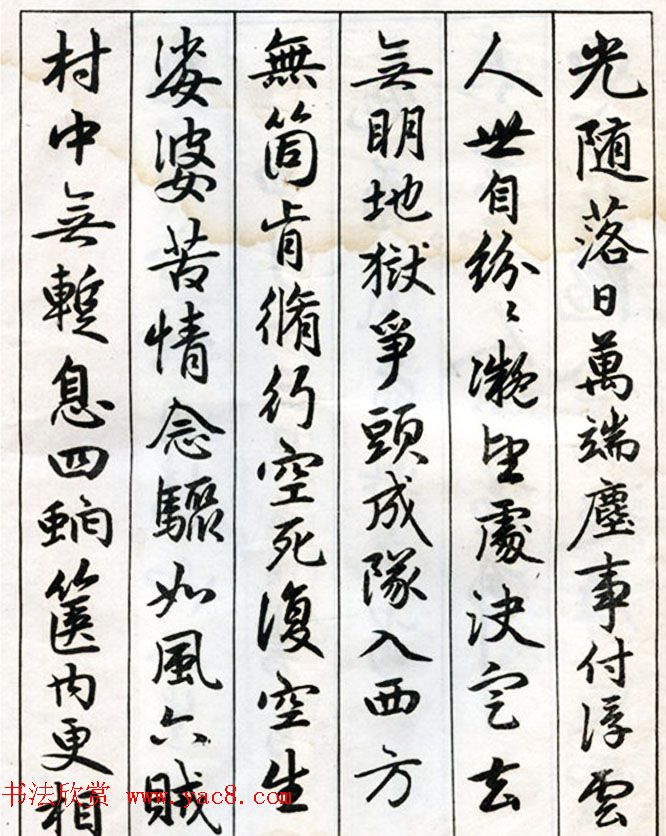 光随落日萬端塵事付浮雲
人世自紛〻凝望處決定去
无明地獄爭頭成隊入西方
無箇肯脩行空死復空生
娑婆苦情念驟如風六賊
村中无暫息四篋内更相
书法欣赏 www.yac8.com